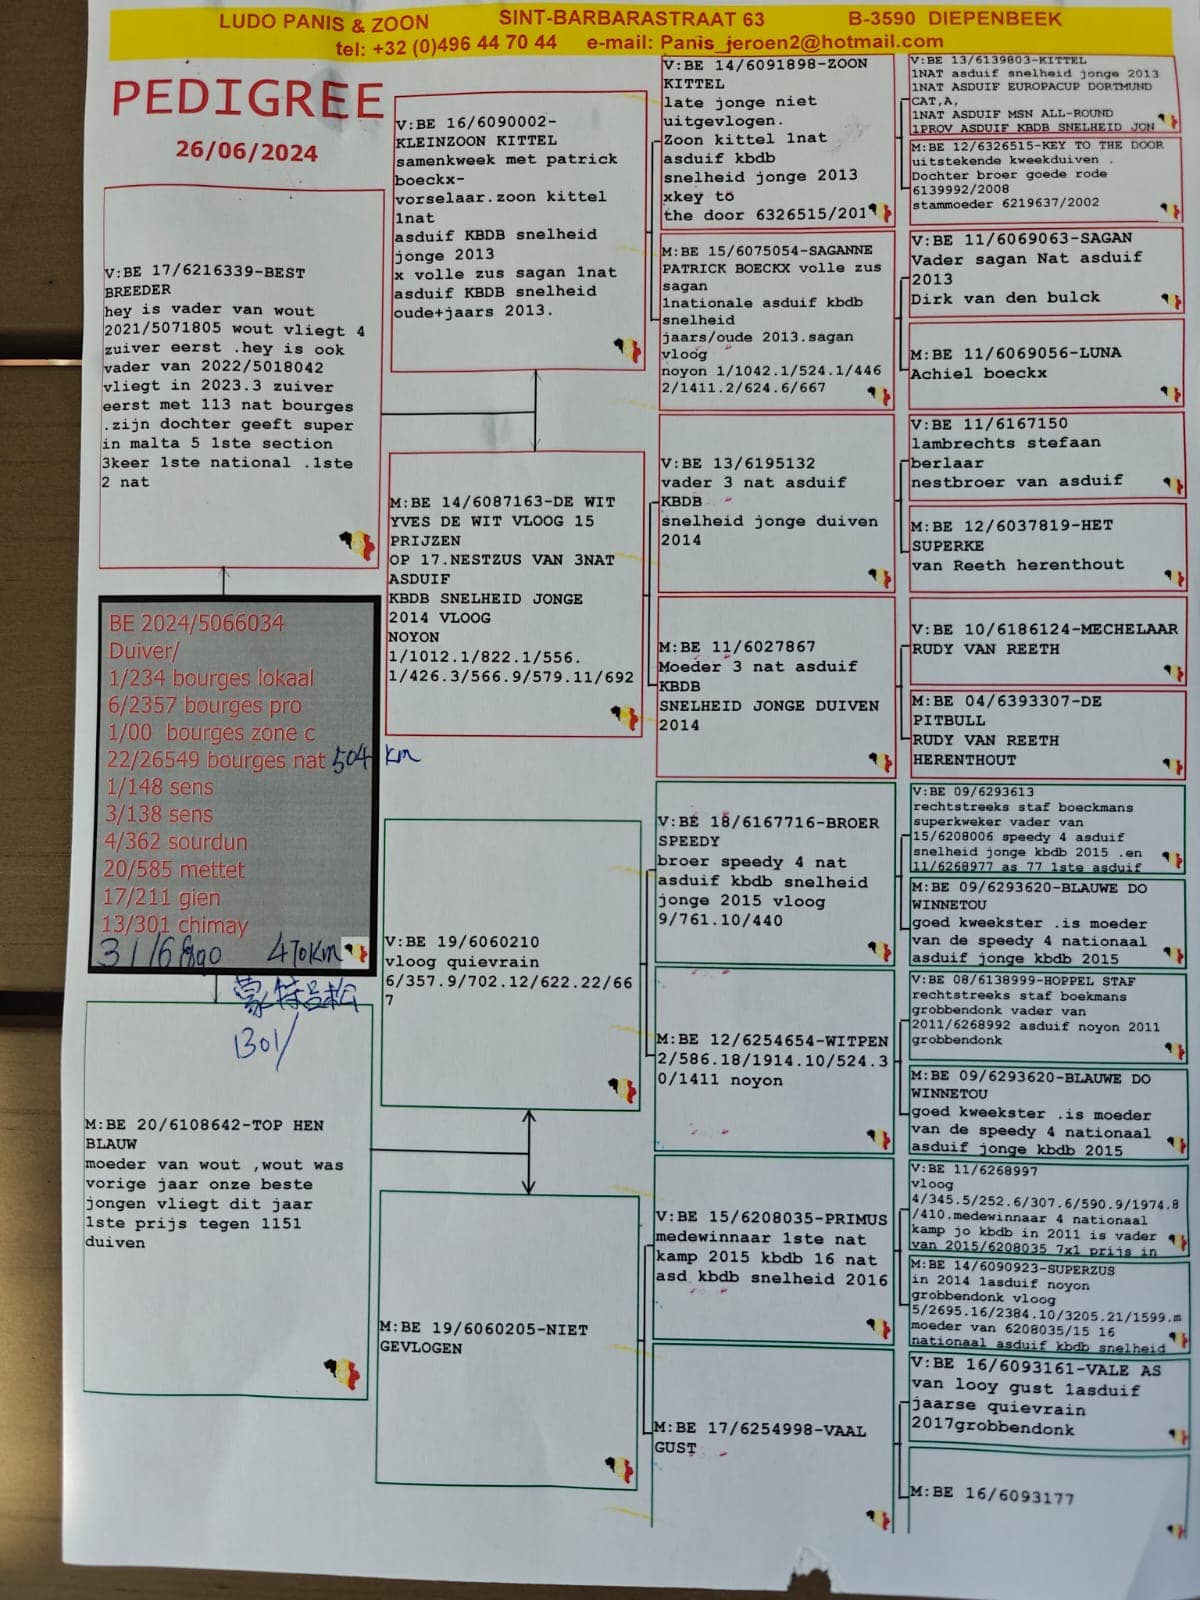 LUDO PANIS & ZOON SINT-BARBARASTRAAT 63 B-3590 DIEPENBEEK
tel: +32 (0)496 44 70 44 e-mail: Panis_jeroen2@hotmail.com
PEDIGREE
26/06/2024
V:BE 17/6216339-BEST
BREEDER
hey is vader van wout
2021/5071805 wout vliegt 4
zuiver eerst .hey is ook
vader van 2022/5018042
vliegt in 2023.3 zuiver
eerst met 113 nat bourges
.zijn dochter geeft super
in malta 5 1ste section
3keer 1ste national .1ste
2 nat
BE 2024/5066034
Duiver/
1/234 bourges lokaal
6/2357 bourges pro
1/00 bourges zone c
22/26549 bourges nat 504 km
1/148 sens
3/138 sens
4/362 sourdun
20/585 mettet
17/211 gien
13/301 chimay
470km
1301/
M:BE 20/6108642-TOP HEN
BLAUW
moeder van wout ,wout was
vorige jaar onze beste
jongen vliegt dit jaar
1ste prijs tegen 1151
duiven
V:BE 16/6090002-
KLEINZOON KITTEL
samenkweek met patrick
boeckx-
vorselaar.zoon kittel
1nat
asduif KBDB snelheid
jonge 2013
x volle zus sagan 1nat
asduif KBDB snelheid
oude+jaars 2013.
M:BE 14/6087163-DE WIT
YVES DE WIT VLOOG 15
PRIJZEN
OP 17.NESTZUS VAN 3NAT
ASDUIF
KBDB SNELHEID JONGE
2014 VLOOG
NOYON
1/1012.1/822.1/556.
1/426.3/566.9/579.11/692
V:BE 19/6060210
vloog quievrain
6/357.9/702.12/622.22/66
7
M:BE 19/6060205-NIET
GEVLOGEN
V:BE 14/6091898-ZOON
KITTEL
late jonge niet
uitgevlogen.
Zoon kittel 1nat
asduif kbdb
snelheid jonge 2013
xkey to
the door 6326515/201
M:BE 15/6075054-SAGANNE
PATRICK BOECKX volle zus
sagan
1nationale asduif kbdb
snelheid
jaars/oude 2013.sagan
vloog
noyon 1/1042.1/524.1/446
2/1411.2/624.6/667
V:BE 13/6195132
vader 3 nat asduif
KBDB
snelheid jonge duiven
2014
M:BE 11/6027867
Moeder 3 nat asduif
KBDB
SNELHEID JONGE DUIVEN
2014
V:BE 18/6167716-BROER
SPEEDY
broer speedy 4 nat
asduif kbdb snelheid
jonge 2015 vloog
9/761.10/440
M:BE 12/6254654-WITPEN
2/586.18/1914.10/524.3
0/1411 noyon
V:BE 15/6208035-PRIMUS
medewinnaar 1ste nat
kamp 2015 kbdb 16 nat
asd kbdb snelheid 2016
M:BE 17/6254998-VAAL
GUST
V:BE 13/6139803-KITTEL
1NAT asduif snelheid jonge 2013
1NAT ASDUIF EUROPACUP DORTMUND
CAT,A,
1NAT ASDUIF MSN ALL-ROUND
1PROV ASDUIF KBDB SNELHEID JON
M:BE 12/6326515-KEY TO THE DOOR
uitstekende kweekduiven .
Dochter broer goede rode
6139992/2008
stammoeder 6219637/2002
V:BE 11/6069063-SAGAN
Vader sagan Nat asduif
2013
Dirk van den bulck
M:BE 11/6069056-LUNA
Achiel boeckx
V:BE 11/6167150
lambrechts stefaan
berlaar
nestbroer van asduif
M:BE 12/6037819-HET
SUPERKE
van Reeth herenthout
V:BE 10/6186124-MECHELAAR
RUDY VAN REETH
M:BE 04/6393307-DE
PITBULL
RUDY VAN REETH
HERENTHOUT
V:BE 09/6293613
rechtstreeks staf boeckmans
superkweker vader van
15/6208006 speedy 4 asduif
snelheid jonge kbdb 2015 .en
11/6268977 as 77 1ste asduif
M:BE 09/6293620-BLAUWE DO
WINNETOU
goed kweekster .is moeder
van de speedy 4 nationaal
asduif jonge kbdb 2015
V:BE 08/6138999-HOPPEL STAF
rechtstreeks staf boekmans
grobbendonk vader van
2011/6268992 asduif noyon 2011
grobbendonk
M:BE 09/6293620-BLAUWE DO
WINNETOU
goed kweekster .is moeder
van de speedy 4 nationaal
asduif jonge kbdb 2015
V:BE 11/6268997
vloog
4/345.5/252.6/307.6/590.9/1974.8
/410.medewinnaar 4 nationaal
kamp jo kbdb in 2011 is vader
van 2015/6208035 7x1 prijs in
M:BE 14/6090923-SUPERZUS
in 2014 1asduif noyon
grobbendonk vloog
5/2695.16/2384.10/3205.21/1599.m
moeder van 6208035/15 16
nationaal asduif kbdb snelheid
V:BE 16/6093161-VALE AS
van looy gust 1asduif
jaarse quievrain
2017grobbendonk
M:BE 16/6093177